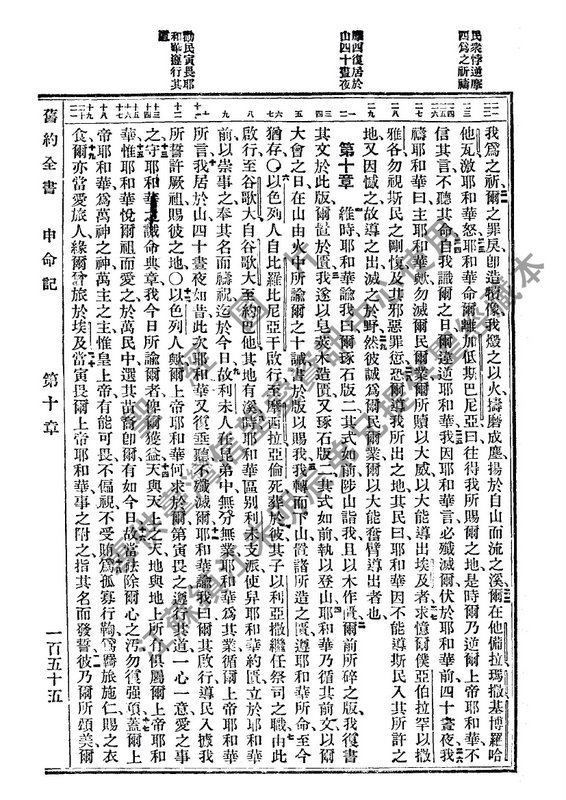 民衆悖逆摩
西爲之祈禱
摩西復居於
山四十晝夜
勸民寅畏耶
和華遵行其
道
我爲之祈爾之罪戾卽造犢像我爇之以火擣磨成塵揚於自山而流之溪爾在他備拉瑪撒基博羅哈
他瓦激耶和華怒耶和華命爾離加低斯巴尼亞曰往得我所賜之地是時爾乃逆爾上帝耶和華不
信其言不聽其命自我識爾之日爾違逆耶和華我因耶和華言必殲滅爾伏於耶和華前四十晝夜我
禱耶和華曰主耶和華歟勿滅爾民爾業爾所贖以大威以大能導出埃及者求憶爾僕亞伯拉罕以撒
雅各勿視斯民之剛愎及其邪惡罪愆恐爾導我所出之地其民曰耶和華因不能導斯民入其所許之
地又因憾之故導之出滅之於野然彼誠爲爾民爾業爾以大能奮臂導出者也
第十章 維時耶和華諭我曰爾琢石版二其式如前陟山詣我且以木作匱爾前所碎之版我復書
其文於此版爾置於匱我遂以皂莢木造匱又琢石版二其式如前執以登山耶和華乃循其前文以爾
大會之日在山由火中所諭爾之十誡書於版以賜我我轉而下山置諸所造之匱遵耶和華所命至今
猶存○以色列人自比羅比尼亞干啟行至摩西拉亞倫死葬於彼其子以利亞撒繼任祭司之職由此
啟行至谷歌大自谷歌大至約巴他其地有溪時耶和華區別利未支派使舁耶和華約匱立於耶和華
前以崇事之奉其名而禱祝迄於今日故利未人在昆弟中無分無業耶和華爲其業循爾上帝耶和華
所言我居於山四十晝夜如昔此次耶和華又復垂聽不殲滅爾耶和華諭我曰爾其啟行導民入據我
所誓許厥祖賜彼之地○以色列人歟爾上帝耶和華何求於爾第寅畏之遵行其道一心一意愛之事
之守耶和華之誡命典章我今日所諭爾者俾爾獲益天與天上之天地與地上所有俱屬爾上帝耶和
華惟耶和華悅爾祖而愛之於萬民中選其苗裔卽爾有如今日故當袪除爾心之汚勿復強項蓋爾上
帝耶和華爲萬神之神萬主之主惟皇上帝有能可畏不偏視不受賄爲孤寡行鞫爲羈旅施仁賜之衣
食爾亦當愛旅人緣爾曾旅於埃及當寅畏爾上帝耶和華事之附之指其名而發誓彼乃爾所頌美爾
舊約全書 申命記 第十章 一百五十五